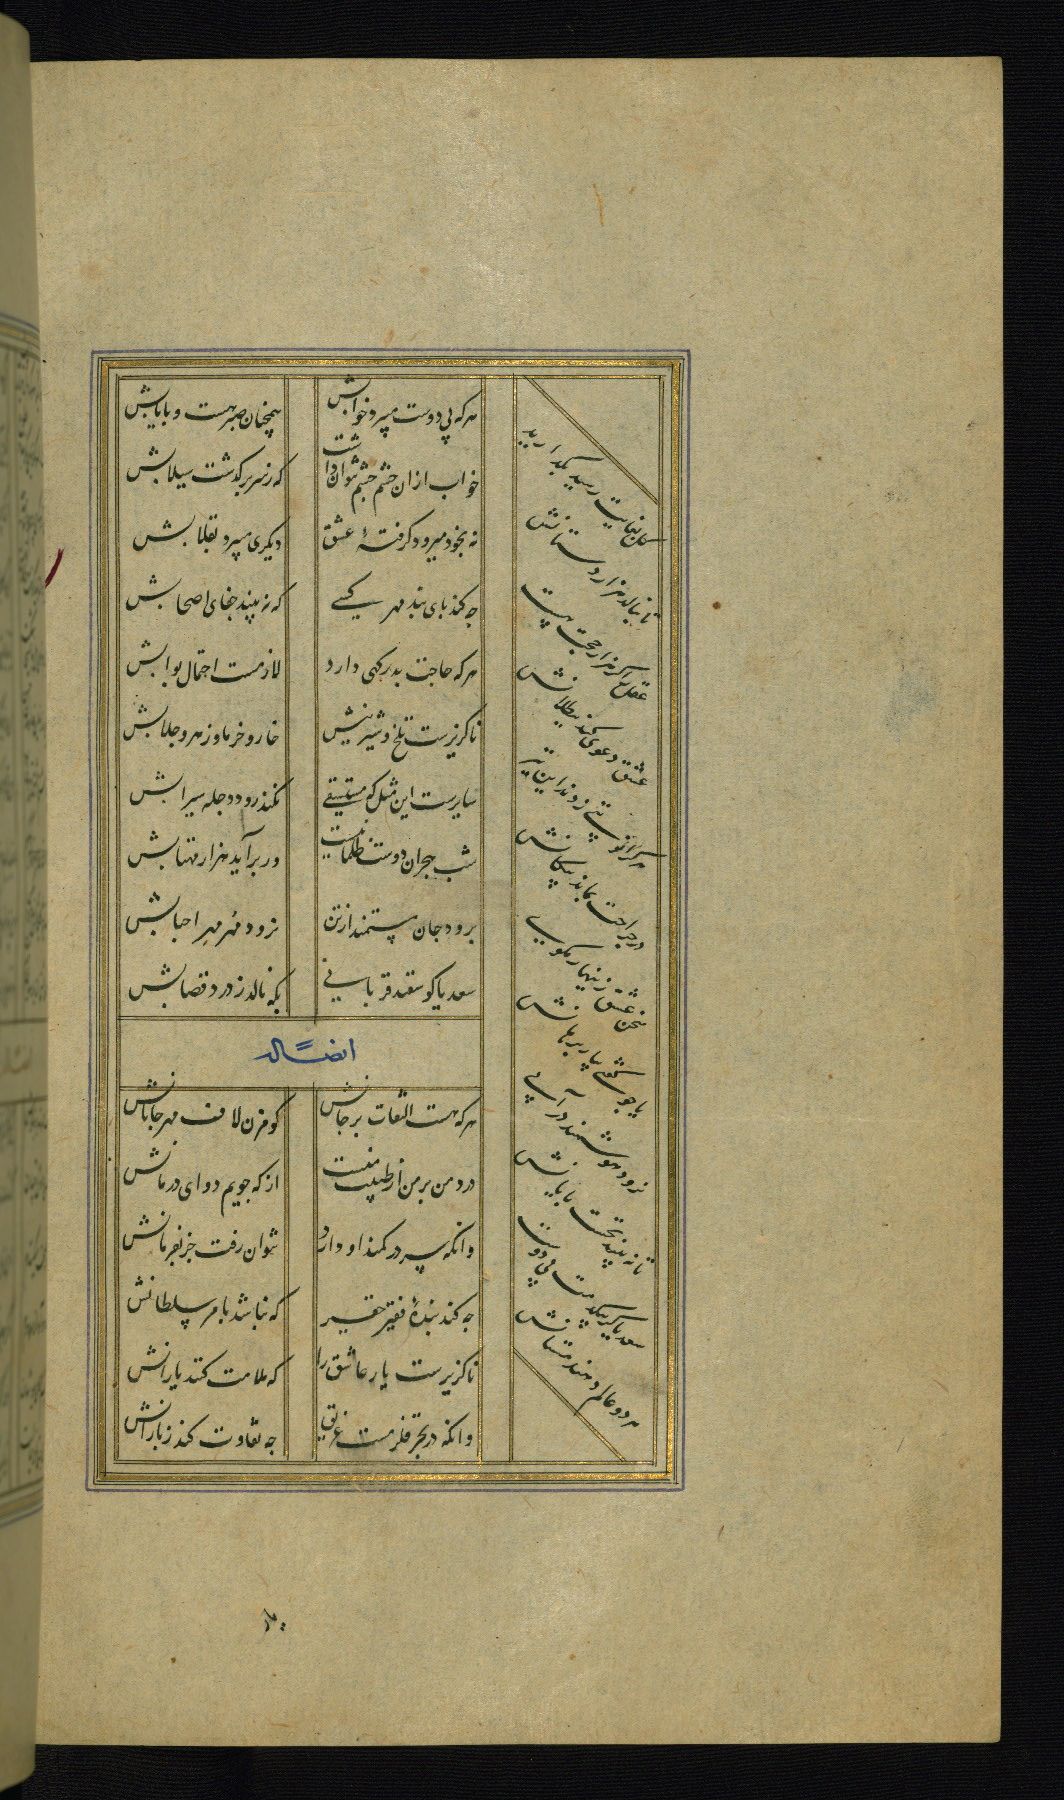 هر که بی دوست میبرد خوابش همچنان صبر هست و پایابش
خواب ازان چشم چشم نتوان داشت که ز سر بر گذشت سیلابش
نه بخود میرود گرفتهٔ عشق دیگری میبرد بقلابش
چه کند پای بند مهر کسی که نه بیند جفای اصحابش
هر که حاجت بدرگهی دارد لازمست احتمال بوابش
ناگزیرست تلخ و شیرینش خار و خرما و زهر و جلابش
سایرست این مثل که مستسقی نکند رود دجله سیرابش
شب هجران دوست ظلمانیست ور برآید هزار مهتابش
برود جان مستمند از تن نرود مهر مهر احبابش
سعدیا گوسفند قربانی بکه نالد ز درد قصابش
ایضاً له
هر که هست التفات بر جانش گو مزن لاف مهر جانانش
درد من بر من از طبیب منست از که جویم دوای درمانش
وانکه سر در کمند او دارد نتوان رفت جز بفرمانش
چه کند بندهٔ فقیر حقیر که نباشد بامر سلطانش
ناگزیرست یار عاشق را که ملامت کنند یارانش
وانکه در بحر قلزمست غریق چه تفاوت کند ز بارانش
گل بغایت رسید بگذارید
تا بنالد هزار دستانش
عقل را گر هزار حجت هست
عشق دعوی کند ببطلانش
هر کرا نوبتی زدند این تیر
در جراحت بماند پیکانش
سخن عشق زینهار مگوی
یا چو گفتی بیار برهانش
نرود هوشمند در آبی
تا نه بیند نخست پایانش
سعدیا گر بیکدمت بی دوست
هر دو عالم دهند مستانش